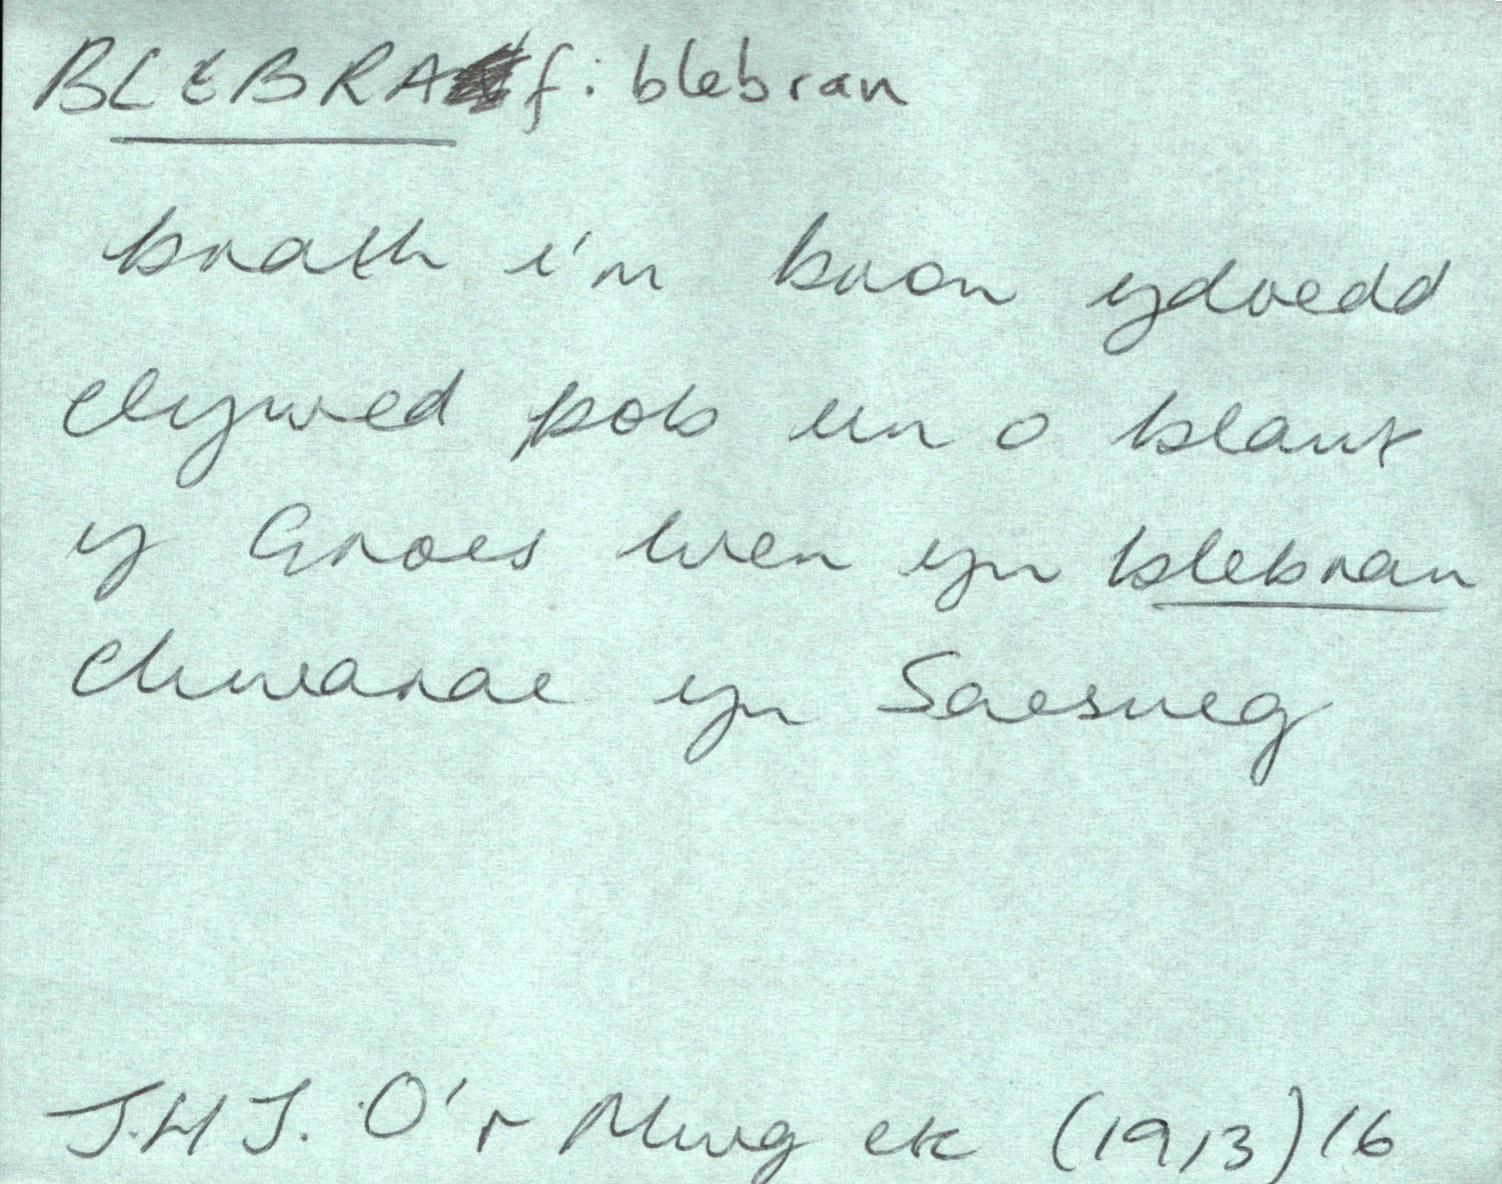 BLEBRA f: blebran
brath i'm bron ydoedd
clywed pob un o blant
y Groes Wen yn blebran
chwarae yn Saesneg
J.H.J. O'r Mwg etc (1913) 16